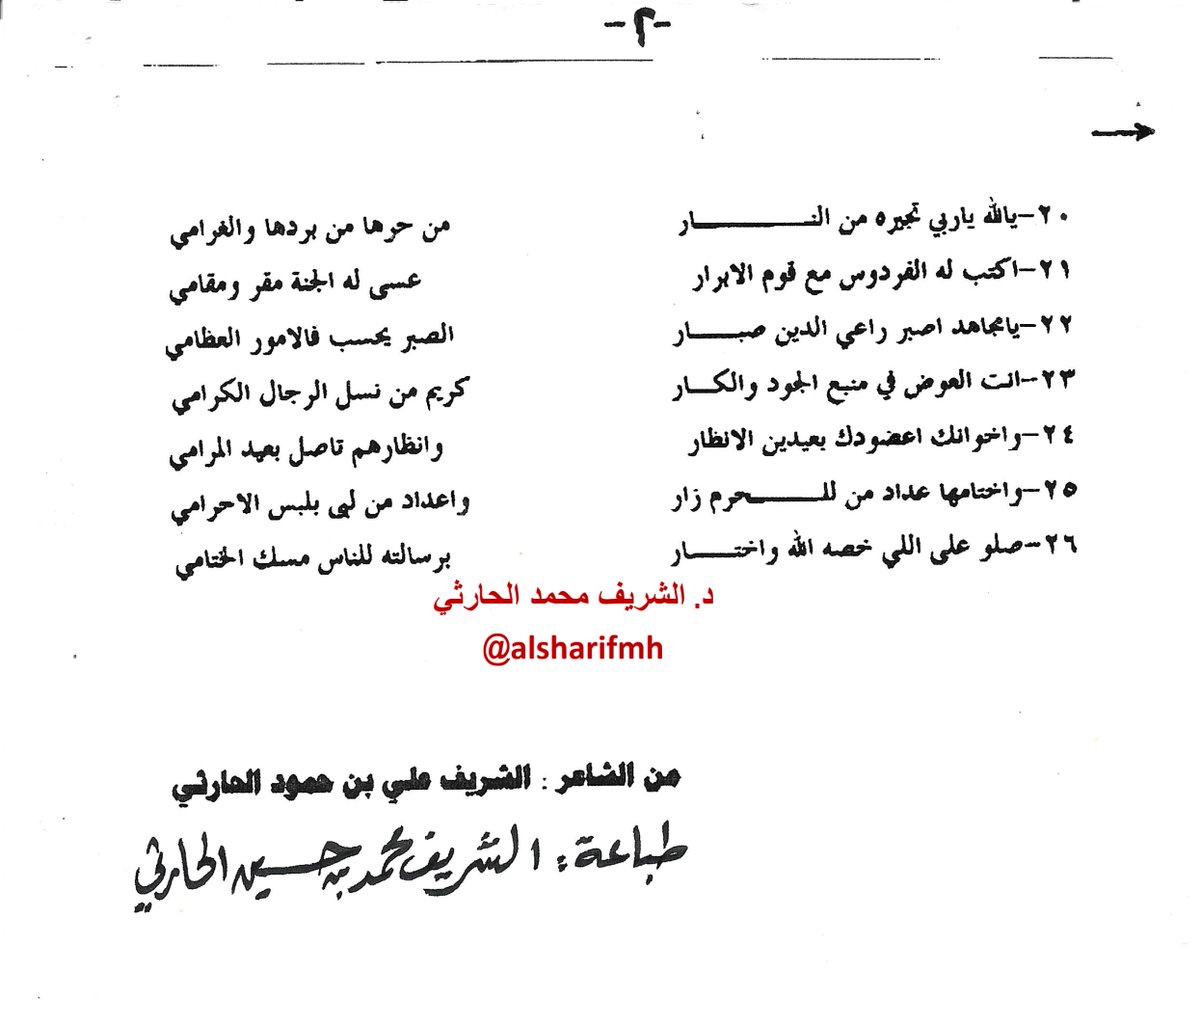 -٢-
٢٠-يالله ياربي تجيره من النـــــــــار من حرها من بردها والغرامي
٢١-اكتب له الفردوس مع قوم الابرار عسى له الجنة مقر ومقامي
٢٢-يامجاهد اصبر راعي الدين صبـــــار الصبر يحسب فالامور العظامي
٢٣-انت العوض في منبع الجود والكـــار كريم من نسل الرجال الكرامي
٢٤-واخوانك اعضودك بعيدين الانظار وانظارهم تاصل بعيد المرامي
٢٥-واختامها عداد من للـــــــحرم زار واعداد من لبى بلبس الاحرامي
٢٦-صلو على اللي خصه الله واختـــــار برسالته للناس مسك الختامي
د. الشريف محمد الحارثي
@alsharifmh
من الشاعر : الشريف علي بن حمود الحارثي
طباعة : الشريف محمد بن حسين الحارثي